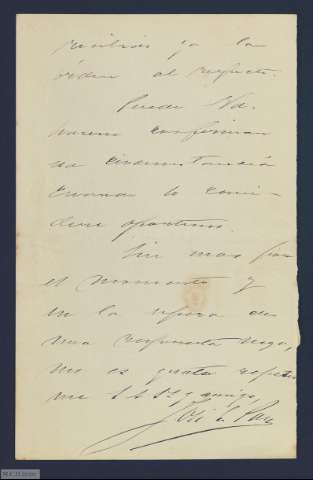 recibido ya la
órden al respecto.
Puede Vd.
hacerme confirmar
circunstancia
cuando lo consi-
dere oportuno.
Sin mas por
el momento y
en la espera de
una respuesta suya,
me es grato repetir
me S.S.S. y amigo,
José C. Paz